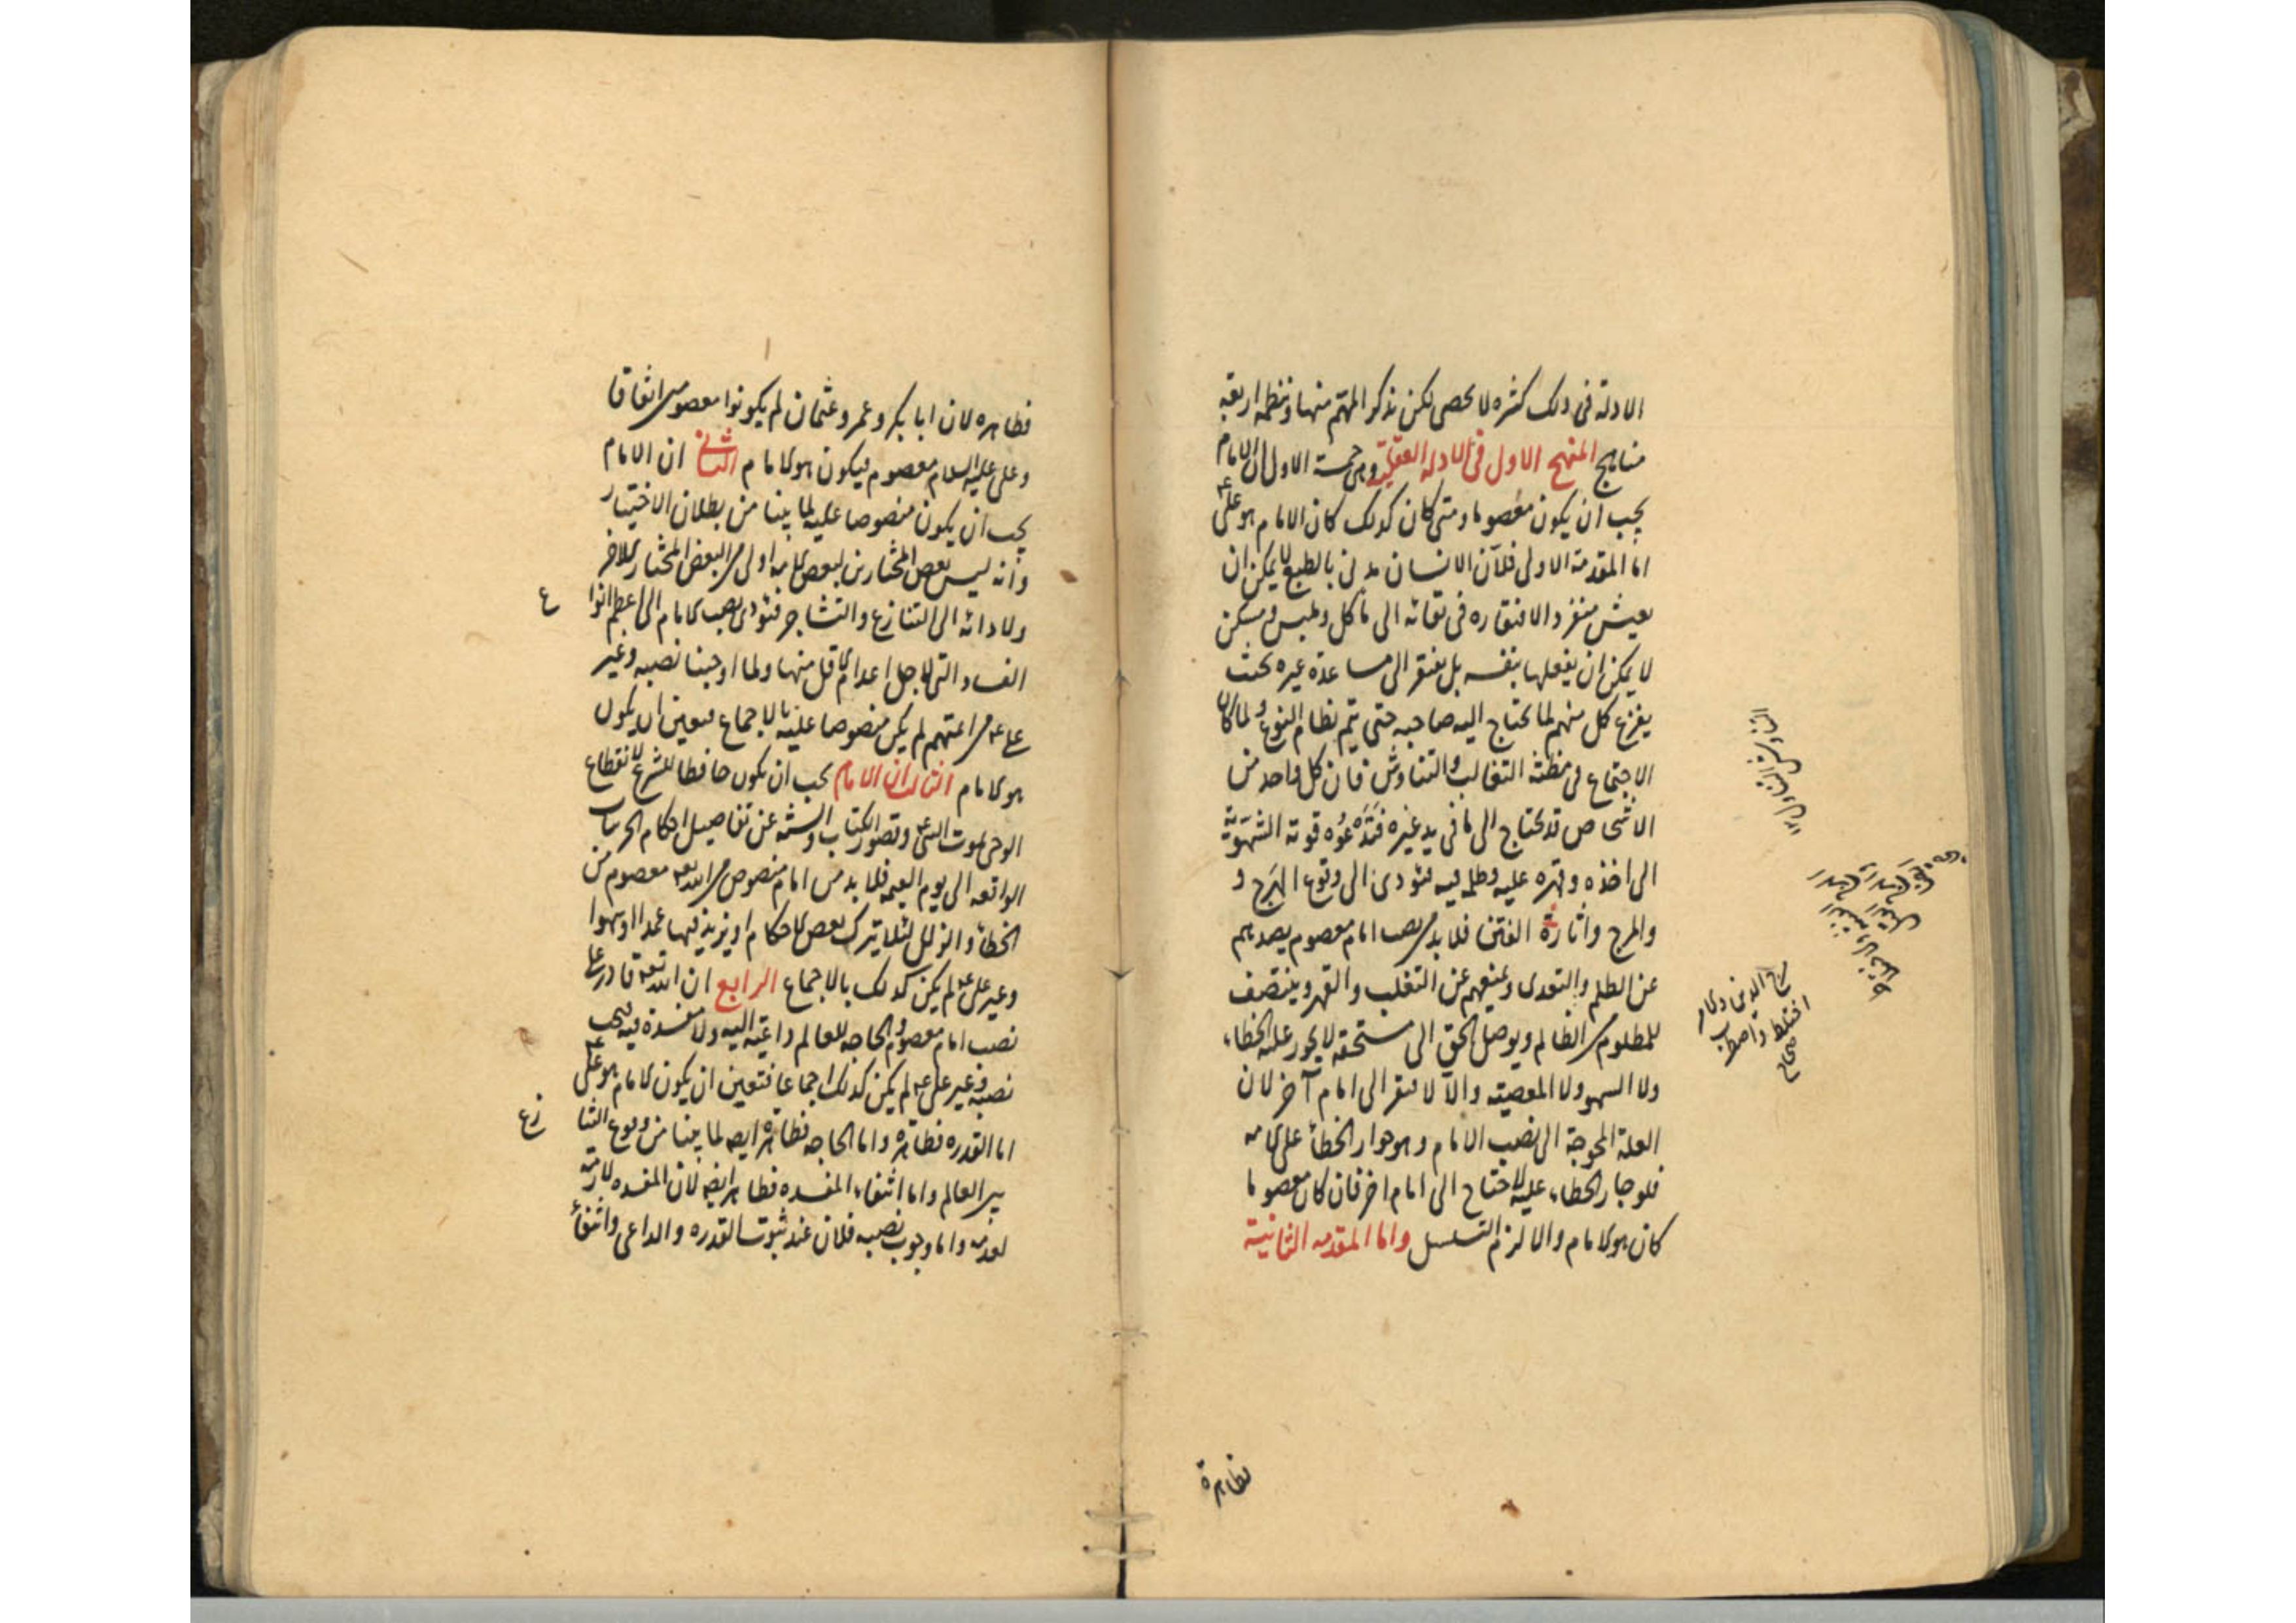 الادلة فى ذلك كثيره لا يحصى لكن نذكر المهم منها وننظمه اربعة
مناهج المنهج الاول فى الادلة العقلية وهى خمسة الاول ان الامام
يجب ان يكون معصوما و متى كان كذلك كان الامام هو على ع
اما المقدمة الاولى فلان الانسان مدنى بالطبع لا يمكن ان
يعيش منفردا لافتقاره فى بقائه الى ماكل و ملبس و مسكن
لا يمكن ان يفعلها بنفسه بل يفتقر الى مساعدة غيره بحيث
يفزع كل منهم لما يحتاج اليه صاحبه حتى يتم نظام النوع و لما كان
الاجتماع فى مظنة التغالب و التناوش فان كل واحد من
الاشخاص قد يحتاج الى ما فى يد غيره فتدعوه قوته الشهوية
الى اخذه و قهره عليه و ظلمه فيه فيؤدى الى وقوع الهرج و
والمرج و اثارة الفتن فلا بد من نصب امام معصوم يصدهم
عن الظلم و التعدى و يمنعهم عن التغلب و القهر و ينتصف
للمظلوم من الظالم و يوصل الحق الى مستحقه لا يجوز عليه الخطاء
ولا السهو ولا المعصية و الا لافتقر الى امام آخر لان
العلة المحوجة الى نصب الامام و هو جواز الخطأ على الامه
فلو جاز الخطاء عليه لاحتاج الى امام اخر فان كان معصوما
كان هو الامام و الا لزم التسلسل و اما المقدمه الثانية
فظاهرة
اختلط و اضطرب
صحاح
فظاهره لان ابا بكر و عمر و عثمان لم يكونوا معصومين اتفاقا
و على عليه السلام معصوم فيكون هو الامام الثانى ان الامام
يجب ان يكون منصوصا عليه لما بينا من بطلان الاختيار
و انه ليس بعض المختارين لبعض الامه اولى من البعض المختار للاخر
و لادائه الى التنازع و التشاجر فيؤدى نصب الامام الى اعظم انوا
ع
الفساد التى لاجل اعدام الاقل منها و لما اوجبنا نصبه و غير
على ع من ائمتهم لم يكن منصوصا عليه بالاجماع فتعين ان يكون
هو الامام الثالث ان الامام يجب ان يكون حافظا للشرع لانقطاع
الوحى بموت النبى ع و قصور الكتاب و السنة عن تفاصيل احكام الجزئيات
الواقعه الى يوم القيمه فلا بد من امام منصوص من الله تعه معصوم من
الخطأ و الزلل لئلا يترك بعض الاحكام او يزيد فيها عمدا او سهوا
و غير على ع لم يكن كذلك بالاجماع الرابع ان الله تعه قادر على
نصب امام معصوم و الحاجه للعالم داعية اليه ولا مفسدة فيه فيجب
نصبه و غير على ع لم يكن كذلك اجماعا فتعين ان يكون الامام هو على ع
اما القدره فظاهرة و اما الحاجه فظاهرة ايضه لما بينا من وقوع التنا
زع
بين العالم و اما انتفاء المفسده فظاهر ايضه لان المفسده لازمة
لعدمه و اما وجوب نصبه فلان عند ثبوت القدره و الداعى و انتفأ